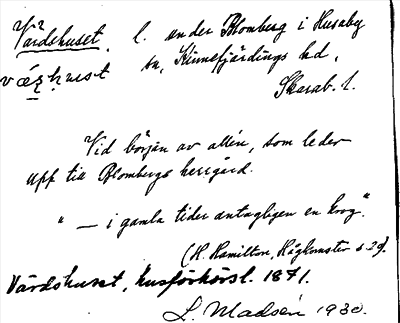 Värdshuset, l. under Blomberg i Husaby
sn, Kinnefjärdings hd,
Skarab. l.
Vid början av allén, som leder
upp till Blombergs herrgård.
" — i gamla tider antagligen en krog."
(H. Hamilton, Hågkomster s. 29).
Värdshuset, husförhörsl. 1871.
L. Madsén 1930.